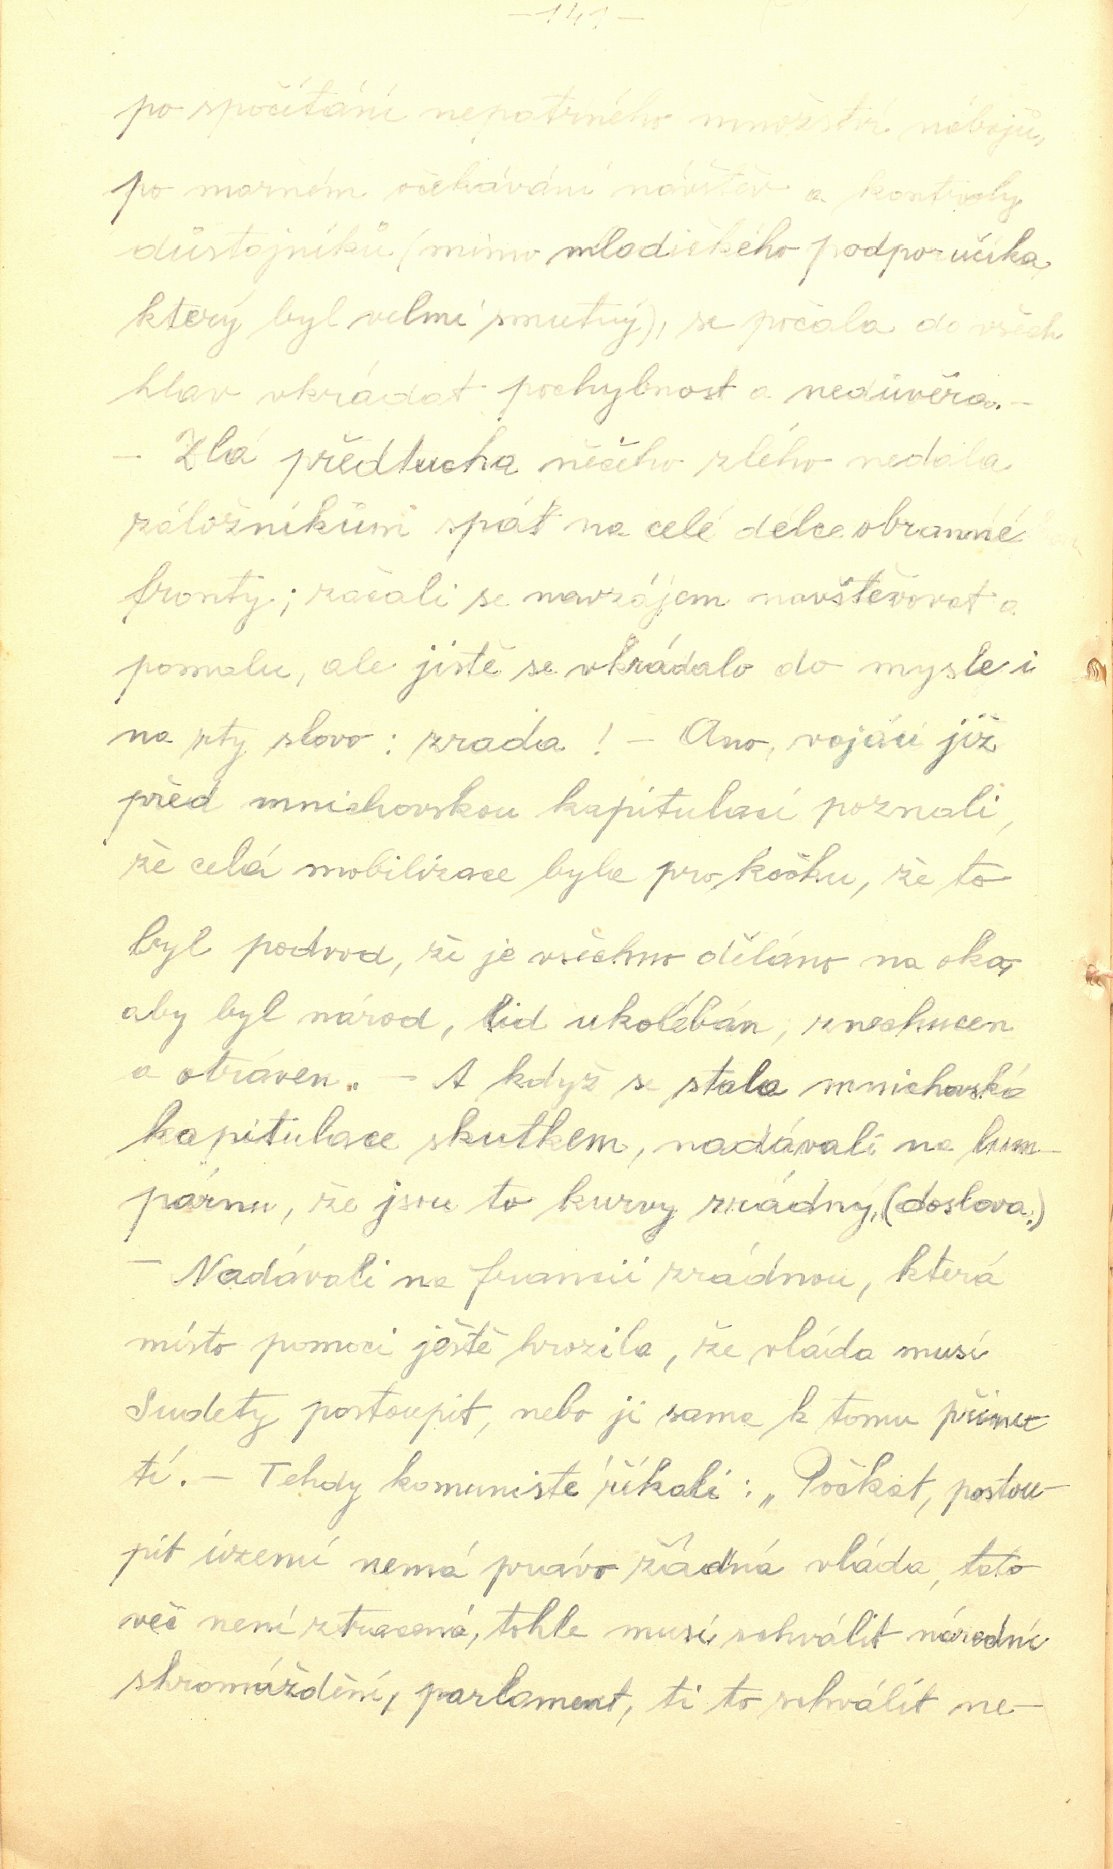 – 141 –
po spočítání nepatrného množství nábojů,
po marném očekávání návštěv a kontroly
důstojníků (mimo mladičkého podporučíka,
který byl velmi smutný), se počala do všech
hlav vkrádat pochybnost a nedůvěra. –
– Zlá předtucha něčeho zlého nedala
záložníkům spát na celé délce obranné
fronty; začali se navzájem navštěvovat a
pomalu, ale jistě se vkrádalo do mysle i
na rty slovo: zrada! – Ano, vojáci již
před mnichovskou kapitulací poznali,
že celá mobilizace byla pro kočku, že to
byl podvod, že je všechno děláno na oko,
aby byl národ, lid ukolébán, znechucen
a otráven. – A když se stala mnichovská
kapitulace skutkem, nadávali na lum-
párnu, že jsou to kurvy zrádný, (doslova.)
– Nadávali na francii zrádnou, která
místo pomoci ještě hrozila, že vláda musí
Sudety postoupit, nebo ji sama k tomu přinu-
tí. – Tehdy komunisté říkali: „Počkat, postou-
pit území nemá právo žádná vláda, tato
věc není ztracená, tohle musí schválit národní
shromáždění, parlament, ti to schválit ne-